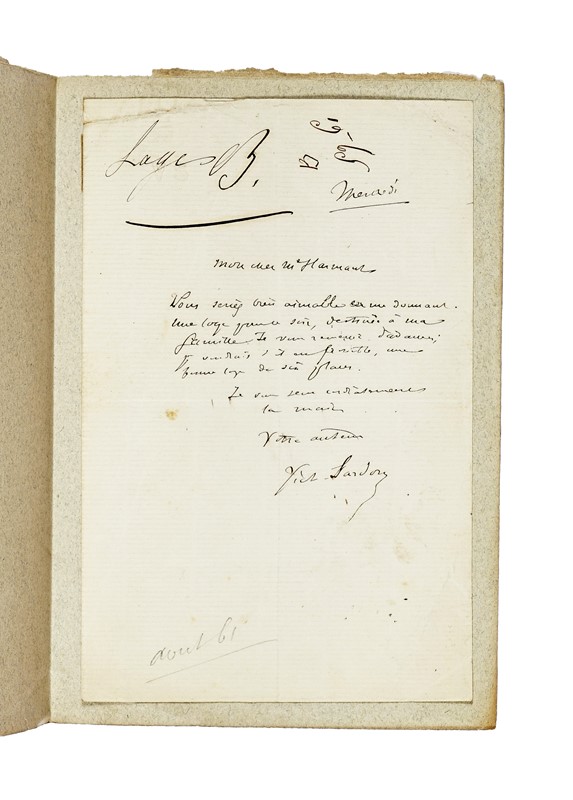 Loges B.
Mercredi
Mon cher Mr Harmant
Vous seriez bien aimable en me donnant
une loge pour ce soir, destinée à ma
famille. Je vous remercie d'avance;
je voudrais s'il est possible, une
bonne loge de six places.
Je vous serre cordialement
la main
Votre auteur
Vict Sardou
aout 61